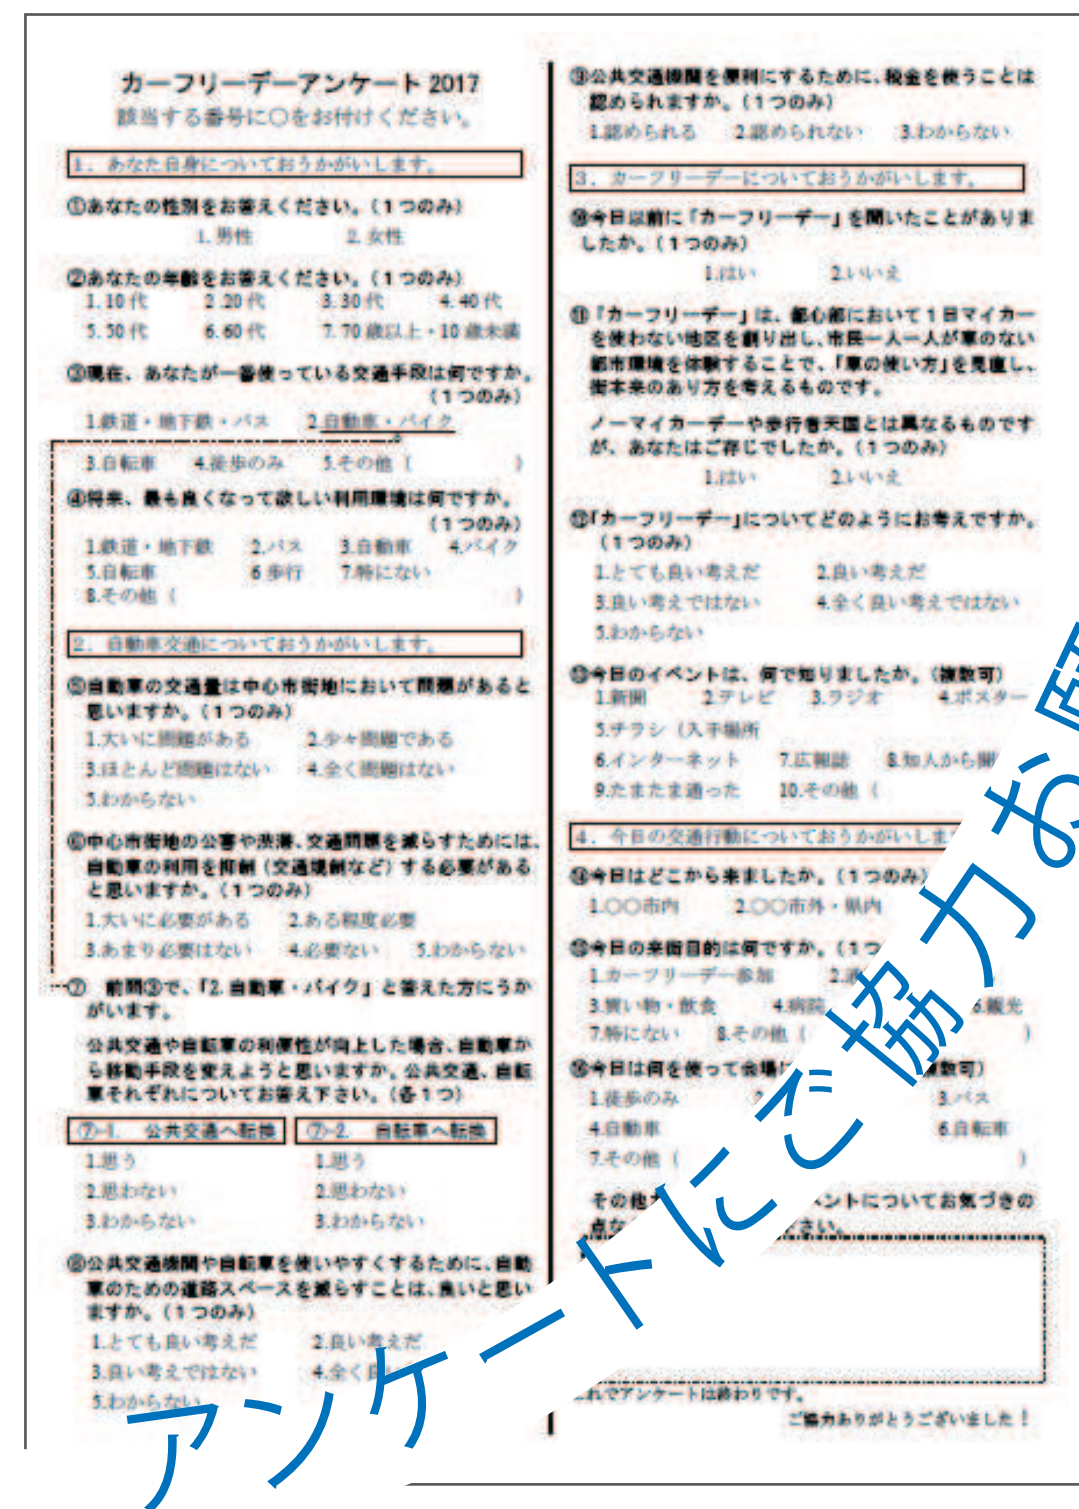 カーフリーデーアンケート 2017
該当する番号に〇をお付けください。
1. あなた自身についておうかがいします。
①あなたの性別をお答えください。(1つのみ)
1. 男性 2. 女性
②あなたの年齢をお答えください。(1つのみ)
1. 10代 2 20代 3. 30代 4. 40代
5. 50代 6. 60代 7. 70歳以上・10歳未満
③現在、あなたが一番使っている交通手段は何ですか。
(1つのみ)
1.鉄道・地下鉄・バス 2.自動車・バイク
3.自転車 4.徒歩のみ 5.その他 ( )
④将来、最も良くなって欲しい利用環境は何ですか。
(1つのみ)
1.鉄道・地下鉄 2.バス 3.自動車 4.バイク
5.自転車 6 歩行 7.特にない
8.その他 ( )
2. 自動車交通についておうかがいします。
⑤自動車の交通量は中心市街地において問題があると
思いますか。(1つのみ)
1.大いに問題がある 2.少々問題である
3.ほとんど問題はない 4.全く問題はない
5.わからない
⑥中心市街地の公害や渋滞、交通問題を減らすためには、
自動車の利用を抑制 (交通規制など) する必要がある
と思いますか。(1つのみ)
1.大いに必要がある 2.ある程度必要
3.あまり必要はない 4.必要ない 5.わからない
⑦ 前問③で、「2. 自動車・バイク」と答えた方にうか
がいます。
公共交通や自転車の利便性が向上した場合、自動車か
ら移動手段を変えようと思いますか。公共交通、自転
車それぞれについてお答え下さい。(各1つ)
⑦-1. 公共交通へ転換 ⑦-2. 自転車へ転換
1.思う 1.思う
2.思わない 2.思わない
3.わからない 3.わからない
⑧公共交通機関や自転車を使いやすくするために、自動
車のための道路スペースを減らすことは、良いと思い
ますか。(1つのみ)
1.とても良い考えだ 2.良い考えだ
3.良い考えではない 4.全く良
5.わからない
⑨公共交通機関を便利にするために、税金を使うことは
認められますか。(1つのみ)
1.認められる 2.認められない 3.わからない
3. カーフリーデーについておうかがいします。
⑩今日以前に「カーフリーデー」を聞いたことがありま
したか。(1つのみ)
1.はい 2.いいえ
⑪「カーフリーデー」は、都心部において1日マイカー
を使わない地区を創り出し、市民一人一人が車のない
都市環境を体験することで、「車の使い方」を見直し、
街本来のあり方を考えるものです。
ノーマイカーデーや歩行者天国とは異なるものです
が、あなたはご存じでしたか。(1つのみ)
1.はい 2.いいえ
⑫「カーフリーデー」についてどのようにお考えですか。
(1つのみ)
1.とても良い考えだ 2.良い考えだ
3.良い考えではない 4.全く良い考えではない
5.わからない
⑬今日のイベントは、何で知りましたか。(複数可)
1.新聞 2.テレビ 3.ラジオ 4.ポスター
5.チラシ (入手場所
6.インターネット 7.広報誌 8.知人から聞
9.たまたま通った 10.その他 (
4. 今日の交通行動についておうかがいしま
⑭今日はどこから来ましたか。(1つのみ)
1.〇〇市内 2.〇〇市外・県内
⑮今日の来街目的は何ですか。(1つ
1.カーフリーデー参加 2.
3.買い物・飲食 4.病院 6.観光
7.特にない 8.その他 ( )
⑯今日は何を使って会場に 複数可)
1.徒歩のみ 3.バス
4.自動車 6.自転車
7.その他 ( )
その他 ベントについてお気づきの
点な さい。
れでアンケートは終わりです。
ご協力ありがとうございました!
アンケートにご協力お